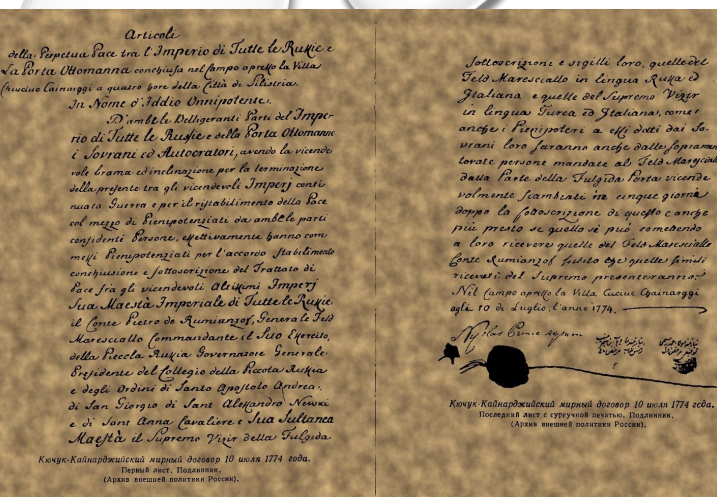 Articoli
della Perpetua Pace tra l'Imperio di Tutte le Rußie e
La Porta Ottomanna conchiusa nel Campo apreßo la Villa
Ciuciuc Cainarggi a quatro hore della Città di Silistria.
In Nome d'Iddio Onnipotente.
D'ambe le Belligeranti Parti del Impe-
rio di Tutte le Rußie e della Porta Ottomanna
i Sovrani ed Autocratori, avendo la vicende
vole brama ed inclinazione per la terminazione
della presente tra gli vicendevoli Imperj conti
nuata Guerra e per il ristabilimento della Pace
col mezzo di Pienipotenziati da ambe le parti
confidenti Persone, effettivamente hanno com
meßi Pienipotenziati per l'accordo stabilimento
conchiusione e sottoscrizione del Trattato di
Pace fra gli vicendevoli Altißimi Imperj
Sua Maestà Imperiale di Tutte le Rußie,
il Conte Pietro de Rumianzof, Generale Feld
Maresciallo Commandante il Suo Esercito,
della Piccola Rußia Governatore Generale
Presidente del Collegio della Piccola Rußia
e degli Ordini di Santo Apostolo Andrea,
di San Giorgio di Sant Aleßandro Newski
e di Sant Anna Cavaliere e Sua Sultanea
Maestà il Supremo Vizir della Fulgida
Кючук-Кайнарджийский мирный договор 10 июля 1774 года.
Первый лист. Подлинник.
(Архив внешней политики России).
Sottoscrizioni e sigilli loro, quelle del
Feld Maresciallo in lingua Rußa ed
Italiana e quelle del Supremo Vizir
in lingua Turca ed Italiana, come
anche i Pienipoteri a eßi dati dai So-
vrani loro saranno anche dalle sopramen
tovate persone mandate al Feld Maresciallo
dalla Parte della Fulgida Porta vicende
volmente scambiati in cinque giorni
doppo la sottoscrizione di questo e anche
più presto se quello si può comettendo
a loro ricevere quelle del Feld Maresciallo
Conte Rumianzof subito che quelle simili
ricevuti del Supremo presenteranno.
Nel Campo apreßo la Villa Cuciuc Chainarggi
agli 10 di Luglio, l'anno 1774.
Кючук-Кайнарджийский мирный договор 10 июля 1774 года.
Последний лист с сургучной печатью. Подлинник.
(Архив внешней политики России).